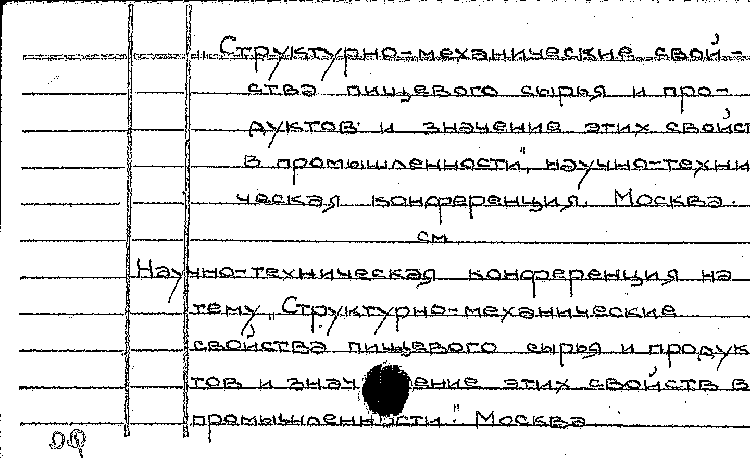 „Структурно-механические свой-
ства пищевого сырья и про-
дуктов и значение этих свойст
в промышленности", научно-техни
ческая конференция. Москва.
см
Научно-техническая конференция на
тему „Структурно-механические
свойства пищевого сырья и продук
тов и значение этих свойств в
промышленности". Москва